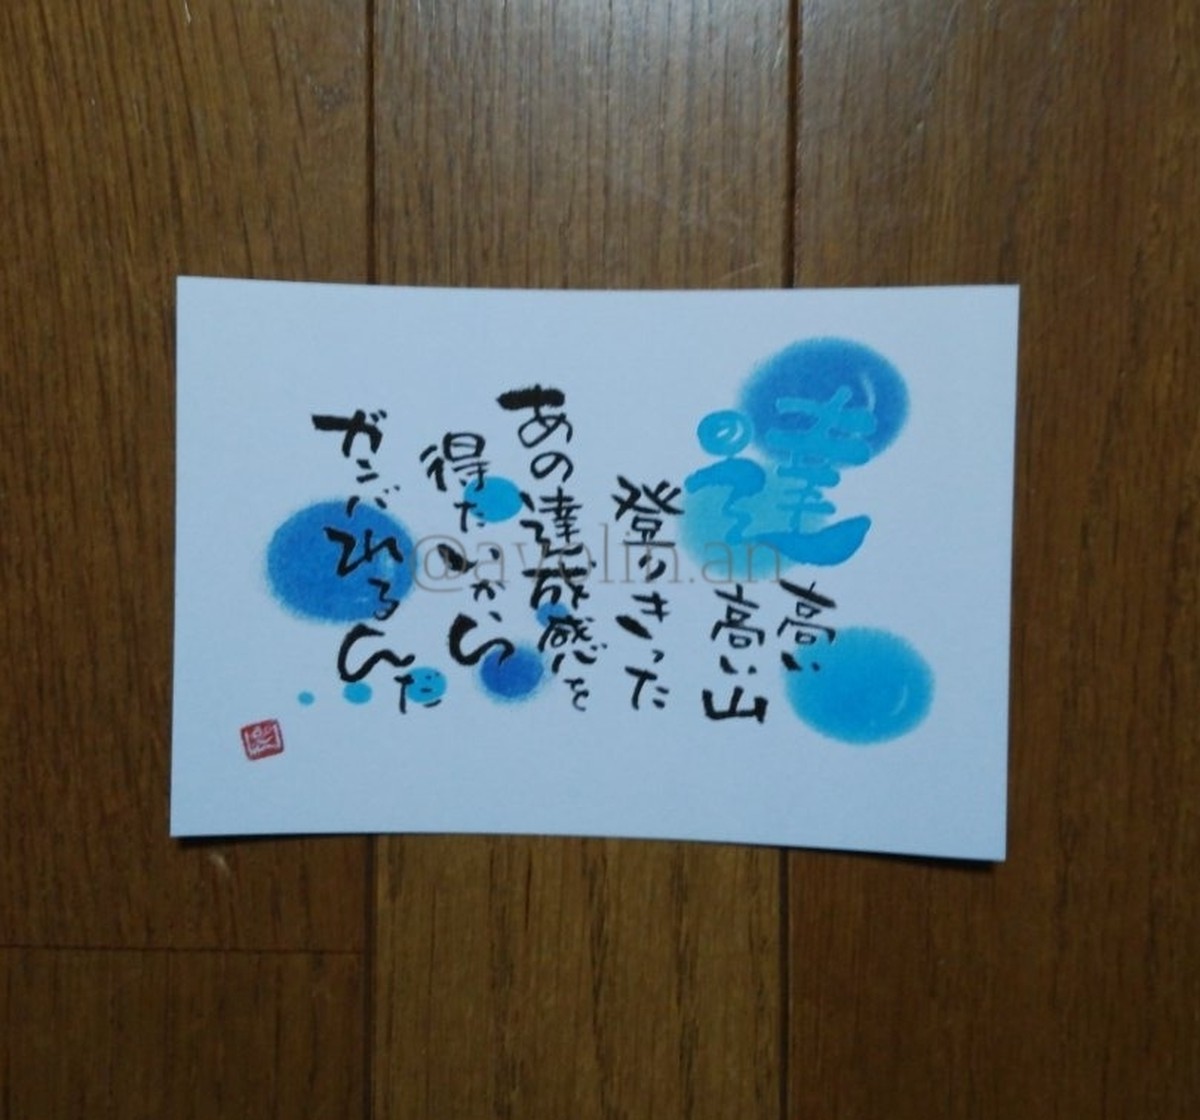 達
高い
高い山
登りきった
あの達成感を
得たいから
ガンバれるんだ